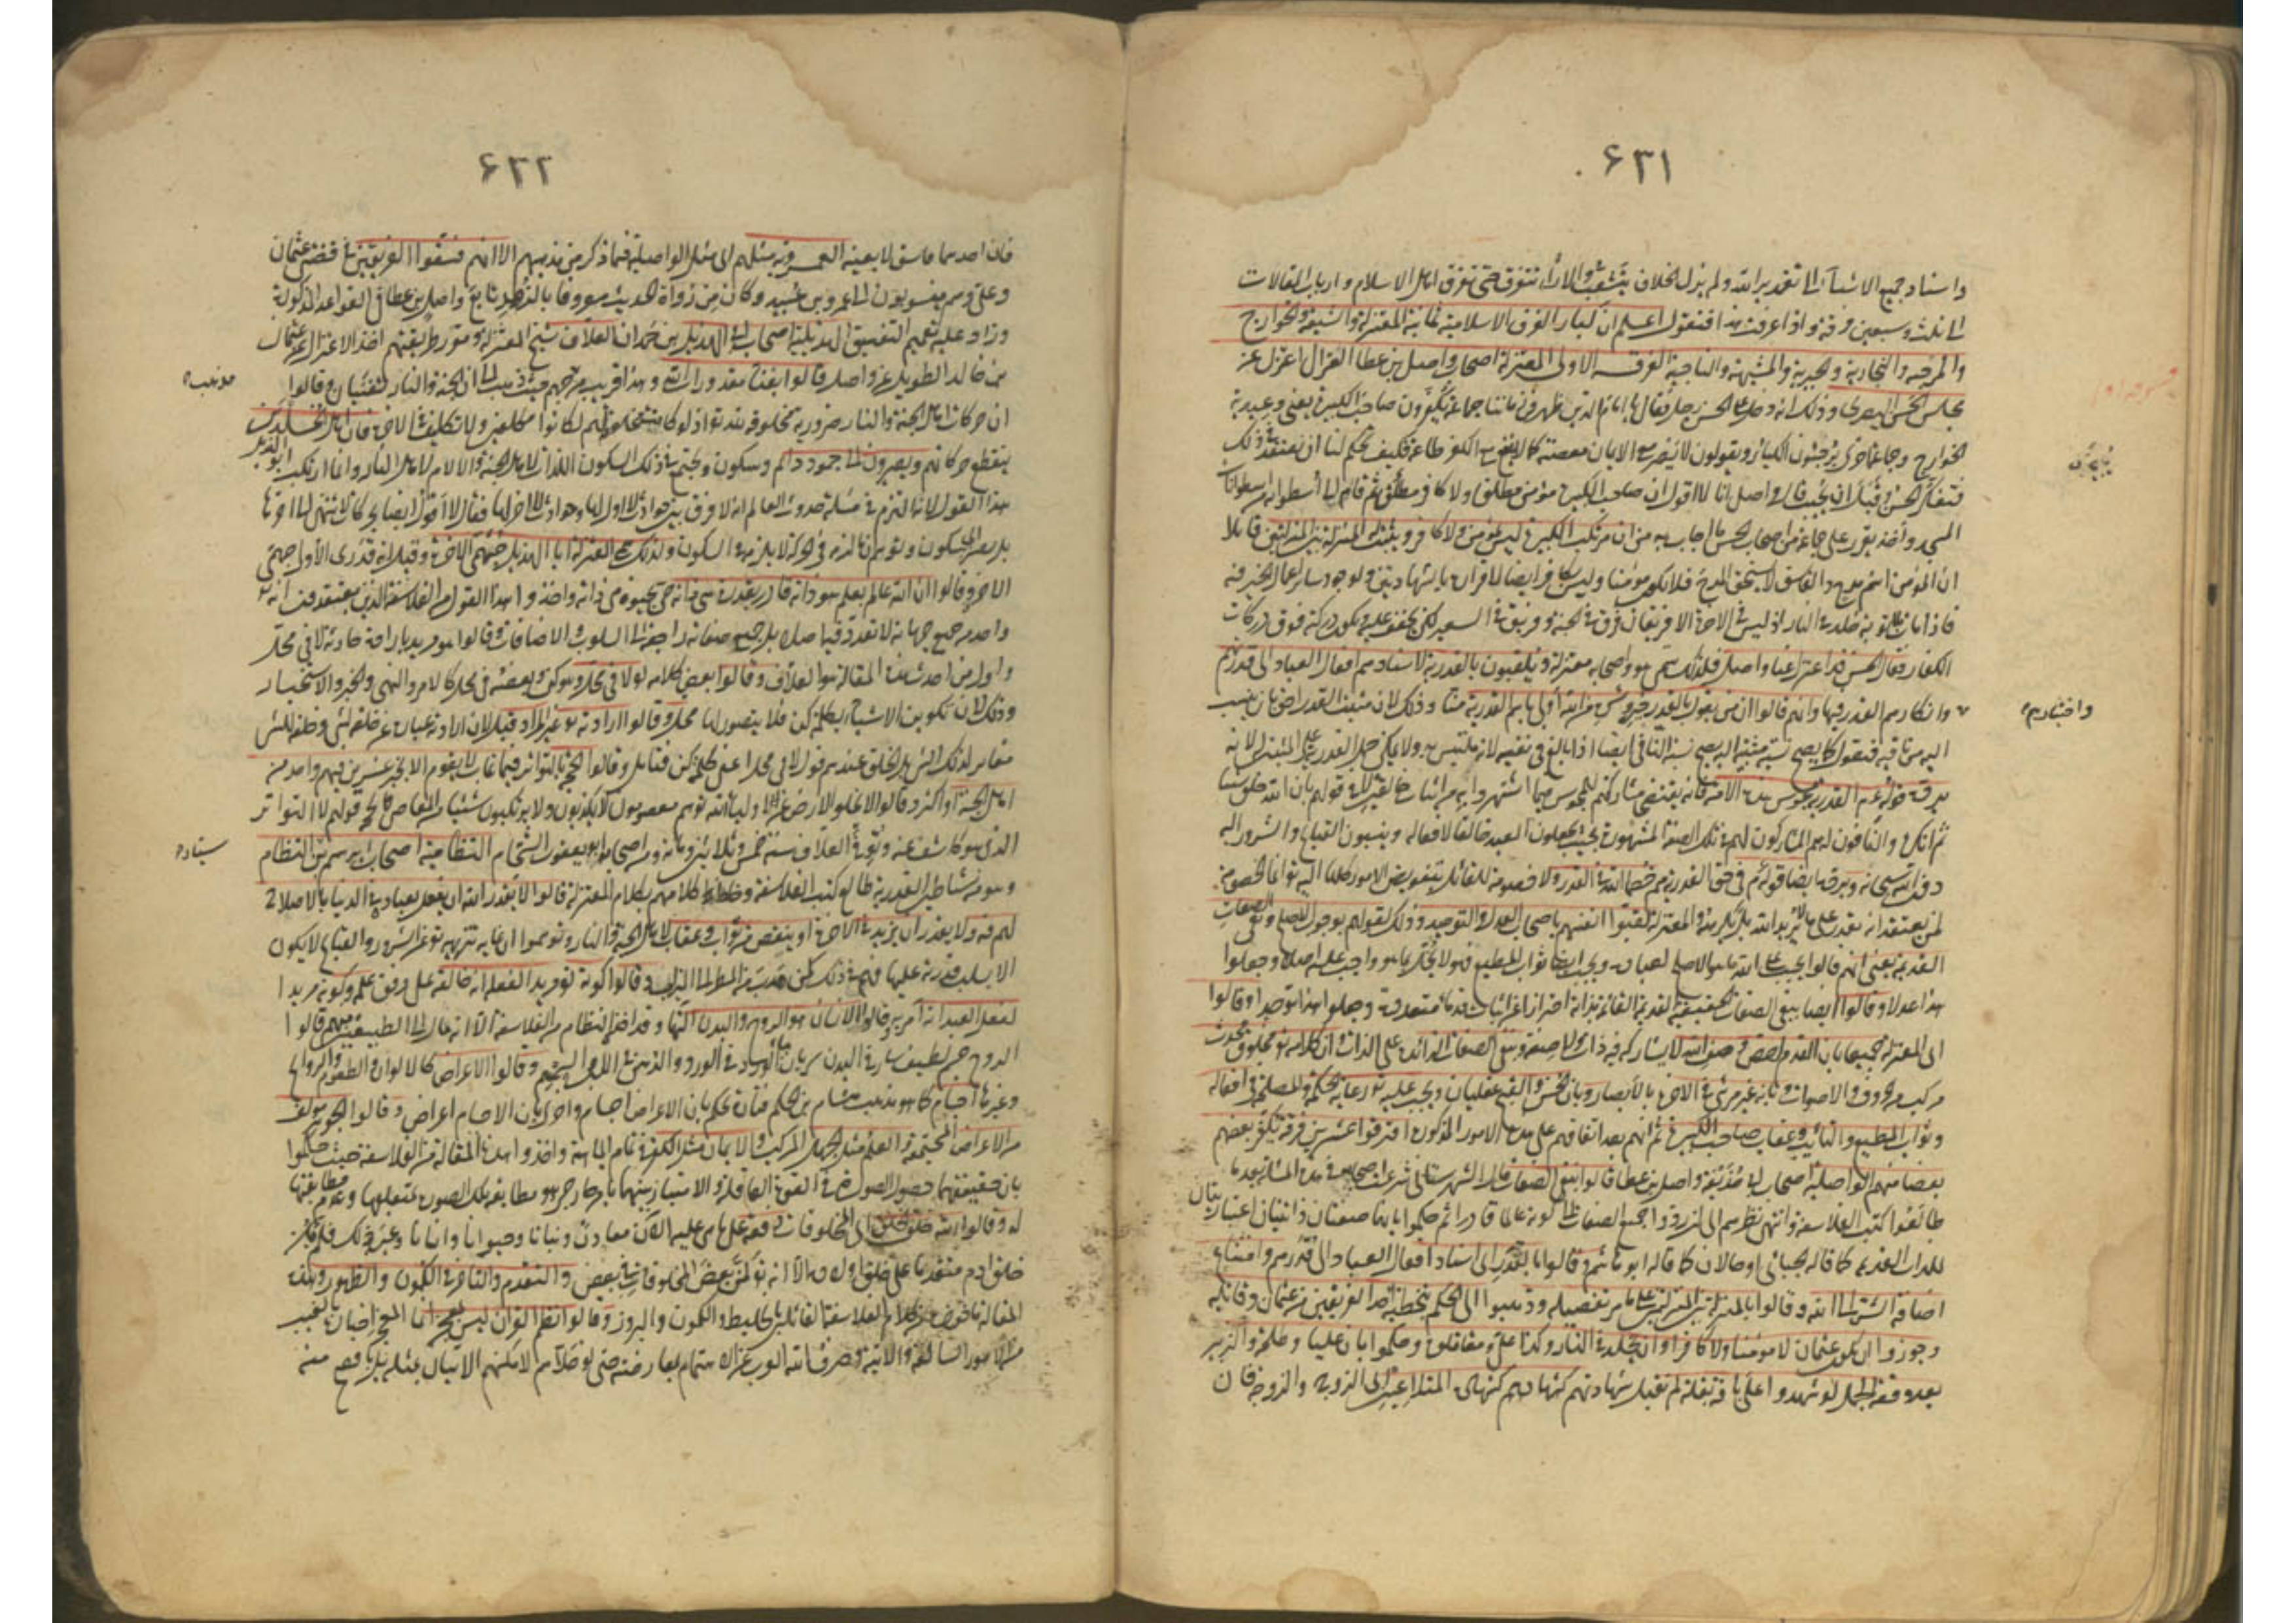 ٦٣١
واسناد جميع الاشياء الى تقدير الله ولم يزل الخلاف يتشعب والاراء تتفرق حتى تفرق اهل الاسلام وارباب المقالات
الى ثلث وسبعين فرقة واذا عرفت هذا فنقول اعلم ان كبار الفرق الاسلامية ثمانية المعتزلة والشيعة والخوارج
والمرجئة والنجارية والجبرية والمشبهة والناجية الفرقة الاولى المعتزلة اصحاب واصل بن عطا الغزال اعتزل عن
مجلس الحسن البصري وذلك انه دخل على الحسن رجل فقال يا امام الدين ظهر في زماننا جماعة يكفرون صاحب الكبيرة يعنى وعيدية
الخوارج وجماعة اخرى يرجئون الكبائر ويقولون لا يضر مع الايمان معصية كما لا ينفع مع الكفر طاعة فكيف تحكم لنا ان نعتقد في ذلك
فتفكر الحسن وقبل ان يجيب قال واصل انا لا اقول ان صاحب الكبيرة مؤمن مطلق ولا كافر مطلق ثم قام الى اسطوانة من اسطوانات
المسجد واخذ يقرر على جماعة من اصحاب الحسن ما اجاب به من ان مرتكب الكبيرة ليس بمؤمن ولا كافر ويثبت المنزلة بين المنزلتين قائلا
ان المؤمن اسم مدح والفاسق لا يستحق المدح فلا يكون مؤمنا وليس بكافر ايضا لاقراره بالشهادتين ولوجود سائر اعمال الخير فيه
فاذا مات بلا توبة خلد في النار اذ ليس في الاخرة الا فريقان فريق في الجنة وفريق في السعير لكن يخفف عليه ويكون دركته فوق دركات
الكفار فقال الحسن قد اعتزل عنا واصل فلذلك سمى هو واصحابه معتزلة ويلقبون بالقدرية لاسنادهم افعال العباد الى قدرتهم
وانكارهم القدر فيها وانهم قالوا ان من يقول بالقدر خيره وشره من الله اولى باسم القدرية منا وذلك لان مثبت القدر احق بان ينسب
اليه من نافيه فنقول كما يصح نسبة مثبته اليه يصح نسبة النافي ايضا اذا بالغ في نفيه لانه ملتبس به ولا يمكن حمل القدرية على المثبت له لانه
يرده قوله عم القدرية مجوس هذه الامة فانه يقتضى مشاركتهم للمجوس فيما اشتهروا به من اثبات خالقين لا في قولهم بان الله خلق شيئا
ثم انكره والنافون له هم المشاركون لهم في تلك الصفة المشهورة حيث يجعلون العبد خالقا لافعاله وينسبون القبايح والشرور اليه
دون الله سبحانه ويرده ايضا قوله عم في حق القدرية هم خصماء الله في القدر ولا خصومة للقائل بتفويض الامور كلها اليه تعالى انما الخصومة
لمن يعتقد انه يقدر على ما لا يريد الله بل يكرهه والمعتزلة لقبوا انفسهم باصحاب العدل والتوحيد وذلك لقولهم بوجوب الاصلح ونفى الصفات
القديمة يعنى انهم قالوا يجب على الله ما هو الاصلح لعباده ويجب ايضا ثواب المطيع فهو لا يخل بما هو واجب عليه اصلا وجعلوا
هذا عدلا وقالوا ايضا بنفى الصفات الحقيقية القديمة القائمة بذاته احترازا عن اثبات قدماء متعددة وجعلوا هذا توحيدا وقالوا
اى المعتزلة جميعا بان القدم اخص وصف الله لا يشاركه فيه ذات ولا صفة وبنفى الصفات الزائدة على الذات وان كلامه تعالى مخلوق محدث
مركب من الحروف والاصوات وبانه غير مرئى في الاخرة بالابصار وبان الحسن والقبح عقليان ويجب عليه تعالى رعاية الحكمة والمصلحة في افعاله
وثواب المطيع والتائب وعقاب صاحب الكبيرة ثم انهم بعد اتفاقهم على هذه الامور المذكورة افترقوا عشرين فرقة يكفر بعضهم
بعضا منهم الواصلية اصحاب ابي حذيفة واصل بن عطا قالوا بنفى الصفات قال الشهرستاني شرعت اصحابه في هذه المسئلة بعد ما
طالعوا كتب الفلاسفة وانتهى نظرهم الى ان ردوا جميع الصفات الى كونه عالما قادرا ثم حكموا بانهما صفتان ذاتيتان اعتباريتان
للذات القديمة كما قاله الجبائي او حالان كما قاله ابو هاشم وقالوا بالقدر اى اسناد افعال العباد الى قدرهم وامتناع
اضافة الشر الى الله وقالوا بالمنزلة بين المنزلتين على ما مر تفصيله وذهبوا الى الحكم بتخطئة احد الفريقين من عثمان وقاتليه
وجوزوا ان يكون عثمان لا مؤمنا ولا كافرا وان يخلد في النار وكذا علي ومقاتلوه وحكموا بان عليا وطلحة والزبير
بعد وقعة الجمل لو شهدوا على باقة بقلة لم تقبل شهادتهم كشهادة المتلاعنين اى الزوج والزوجة فان
واختيارهم
٦٣٢
فان احدهما فاسق لا بعينه العمروية مثلهم اى مثل الواصلية فيما ذكر من مذهبهم الا انهم فسقوا الفريقين في قضيتى عثمان
وعلي وهم منسوبون الى عمرو بن عبيد وكان من رواة الحديث معروفا بالزهد تابع واصل بن عطا في القواعد المذكورة
وزاد عليه تعميم التفسيق الهذيلية اصحاب ابي الهذيل بن حمدان العلاف شيخ المعتزلة ومقرر طريقتهم اخذ الاعتزال عن عثمان
بن خالد الطويل عن واصل قالوا بفناء مقدورات الله وهذا قريب من مذهب جهم حيث ذهب الى ان الجنة والنار تفنيان وقالوا
ان حركات اهل الجنة والنار ضرورية مخلوقة لله تعالى اذ لو كانت مخلوقة لهم لكانوا مكلفين ولا تكليف في الاخرة فان اهل الخلدين
ينقطع حركاتهم ويصيرون الى خمود دائم وسكون ويجتمع في ذلك السكون اللذات لاهل الجنة والالام لاهل النار وانما ارتكب ابو الهذيل
هذا القول لانه التزم في مسئلة حدوث العالم انه لا فرق بين حوادث لا اول لها وحوادث لا اخر لها فقال لا اقول ايضا بحركات لا تنتهى الى اخرها
بل يصير الى سكون وتوهم ان ما لزمه في الحركة لا يلزمه في السكون ولذلك سمى المعتزلة ابا الهذيل جهمى الاخرة وقيل انه قدرى الاولى جهمى
الاخرة وقالوا ان الله عالم بعلم هو ذاته قادر بقدرة هي ذاته حى بحيوة هي ذاته واخذوا هذا القول من الفلاسفة الذين يعتقدون انه تعالى
واحد من جميع جهاته لا تعدد فيه اصلا بل جميع صفاته راجعة الى السلوب والاضافات وقالوا هو مريد بارادة حادثة لا في محل
واول من احدث هذه المقالة هو العلاف وقالوا بعض كلامه لا في محل وهو كن وبعضه في محل كالامر والنهى والخبر والاستخبار
وذلك لان تكوين الاشياء بكلمة كن فلا يتصور لها محل وقالوا ارادته تعالى غير المراد قيل لان الارادة عبارة عن خلقه لشئ وخلقه للشئ
مغاير لذلك الشئ بل الخلق عندهم قول لا في محل اعنى كلمة كن فتامل وقالوا الحجة بالتواتر فيما غاب لا يقوم الا بخبر عشرين فيهم واحد من
اهل الجنة او اكثر وقالوا لا تخلو الارض عن اولياء الله تعالى هم معصومون لا يكذبون ولا يرتكبون شيئا من المعاصى فالحجة قولهم لا التواتر
الذى هو كاشف عنه وتوفى العلاف سنة خمس وثلاثين ومائتين ومن اصحابه ابو يعقوب الشحام النظامية اصحاب ابراهيم بن سيار النظام
وهو من شياطين القدرية طالع كتب الفلاسفة وخلط كلامهم بكلام المعتزلة قالوا لا يقدر الله ان يفعل بعباده في الدنيا ما لا صلاح
لهم فيه ولا يقدر ان يزيد في الاخرة او ينقص من ثواب وعقاب لاهل الجنة والنار وتوهموا ان غاية تنزيهه تعالى عن الشرور والقبايح لا يكون
الا بسلب قدرته عليها فهم في ذلك كمن هرب من المطر الى الميزاب وقالوا كونه تعالى مريدا لفعله انه خالقه على وفق علمه وكونه مريدا
لفعل العبد انه آمر به وقالوا الانسان هو الروح والبدن آلتها وقد اخذ النظام من الفلاسفة الا انه مال الى الطبيعيين منهم فقالوا
الروح جسم لطيف سار في البدن سريان ماء الورد في الورد والدهن في السمسم وقالوا الاعراض كالالوان والطعوم والروائح
وغيرها اجسام كما هو مذهب هشام بن الحكم فتارة يحكم بان الاعراض اجسام واخرى بان الاجسام اعراض وقالوا الجوهر مؤلف
من الاعراض المجتمعة والعلم مثل الجهل المركب والايمان مثل الكفر في تمام الماهية واخذوا هذه المقالة من الفلاسفة حيث حكموا
بان حقيقتهما حصول الصورة في القوة العاقلة والامتياز بينهما بامر خارجى هو مطابقة تلك الصورة لمتعلقها وعدم مطابقتها
له وقالوا الله خلق الخلق اى المخلوقات دفعة على ما هى عليه الان معادن ونباتا وحيوانا وانسانا وغير ذلك فلم يكن
خلق ادم متقدما على خلق اولاده الا انه تعالى كمن بعض المخلوقات في بعض والتقدم والتاخر في الكمون والظهور وهذه
المقالة ماخوذة من كلام الفلاسفة القائلين بالخليط والكمون والبروز وقالوا نظم القران ليس بمعجز انما المعجز اخباره بالغيب
من الامور السالفة والاتية وصرف الله العرب عن الاهتمام بمعارضته حتى لو خلاهم لامكنهم الاتيان بمثله بل بافصح منه
مذهب
سيار